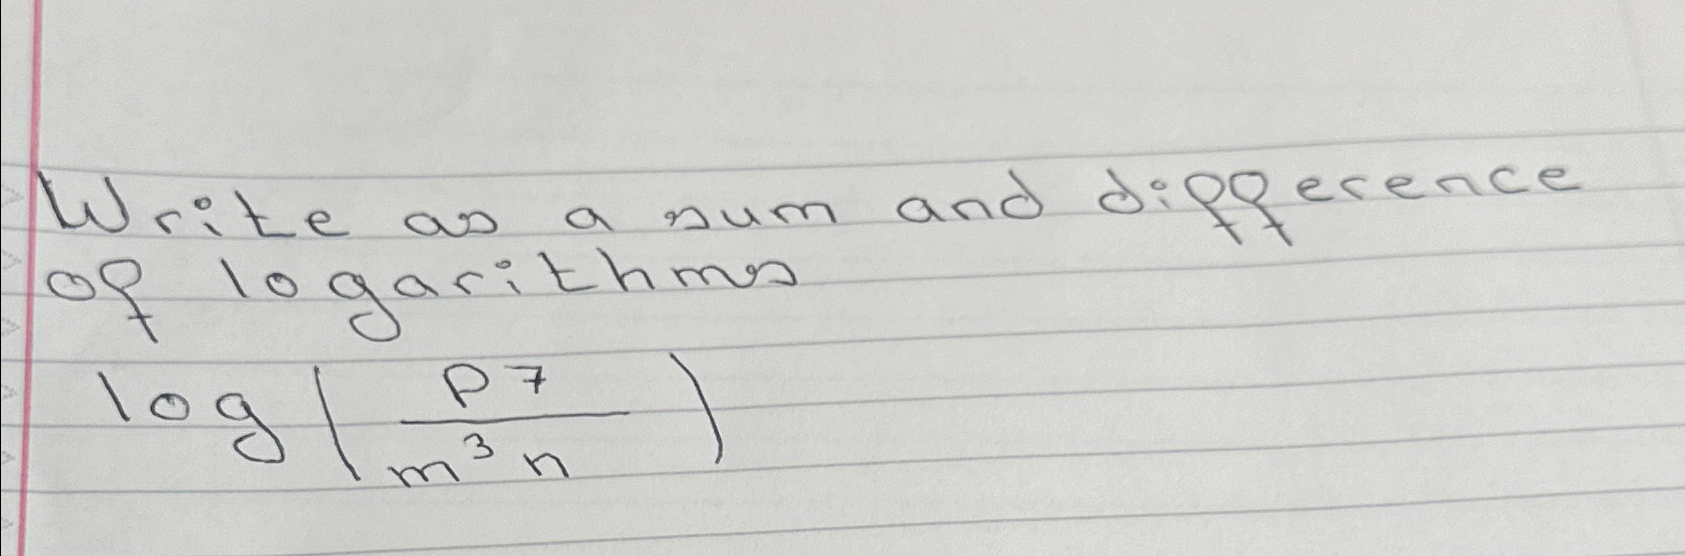 Write as a sum and difference
of logarithms
log(p^7/(m^3 n))